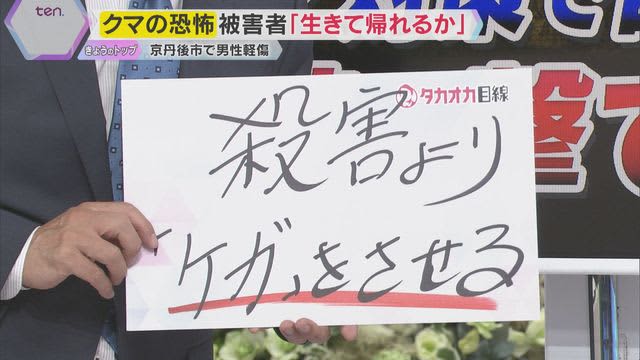 ten.
クマの恐怖 被害者「生きて帰れるか」
きょうのトップ
京丹後市で男性軽傷
タカオカ目線
殺害より
「ケガ」をさせる